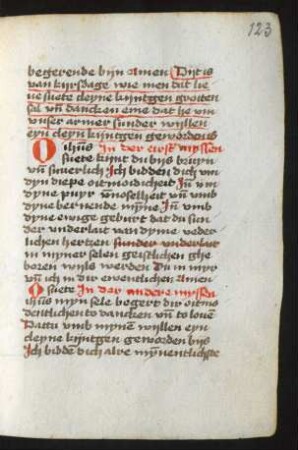 123
begerende bijn Amen Dijt is
vā kijrsdage wie men dat lie
ue suete cleyne kijntgen groiten
sal vn̄ dancken eme dat he vm
vnser armer sunder wijllen
eyn cleyn kijntgen geworden is
O ihūs In der eirst myssen
suete kijnt du bijs bruyn
vn̄ suuerlich Ich bidden dich vm
dyn diepe oitmoidicheit In vm
dyne puyr vnoselheit vn̄ vmb
dyne bernende mȳne In vmb
dyne ewige geburt dat du sun
der vnderlait van dyme veder
lichen hertzen sunder vnderlait
in mijner selen geistlichen ghe
boren wijls werden Du in myr
vn̄ ich in dir ewentlichen Amen
O suete In der andere myssen
ihūs mijn sele begert dir oitmo
dentlichen to dancken vn̄ to louē
Dattu vmb mynen wijllen eyn
cleyne kijntgen geworden bijs
Ich biddē dich alre mȳnentlichste